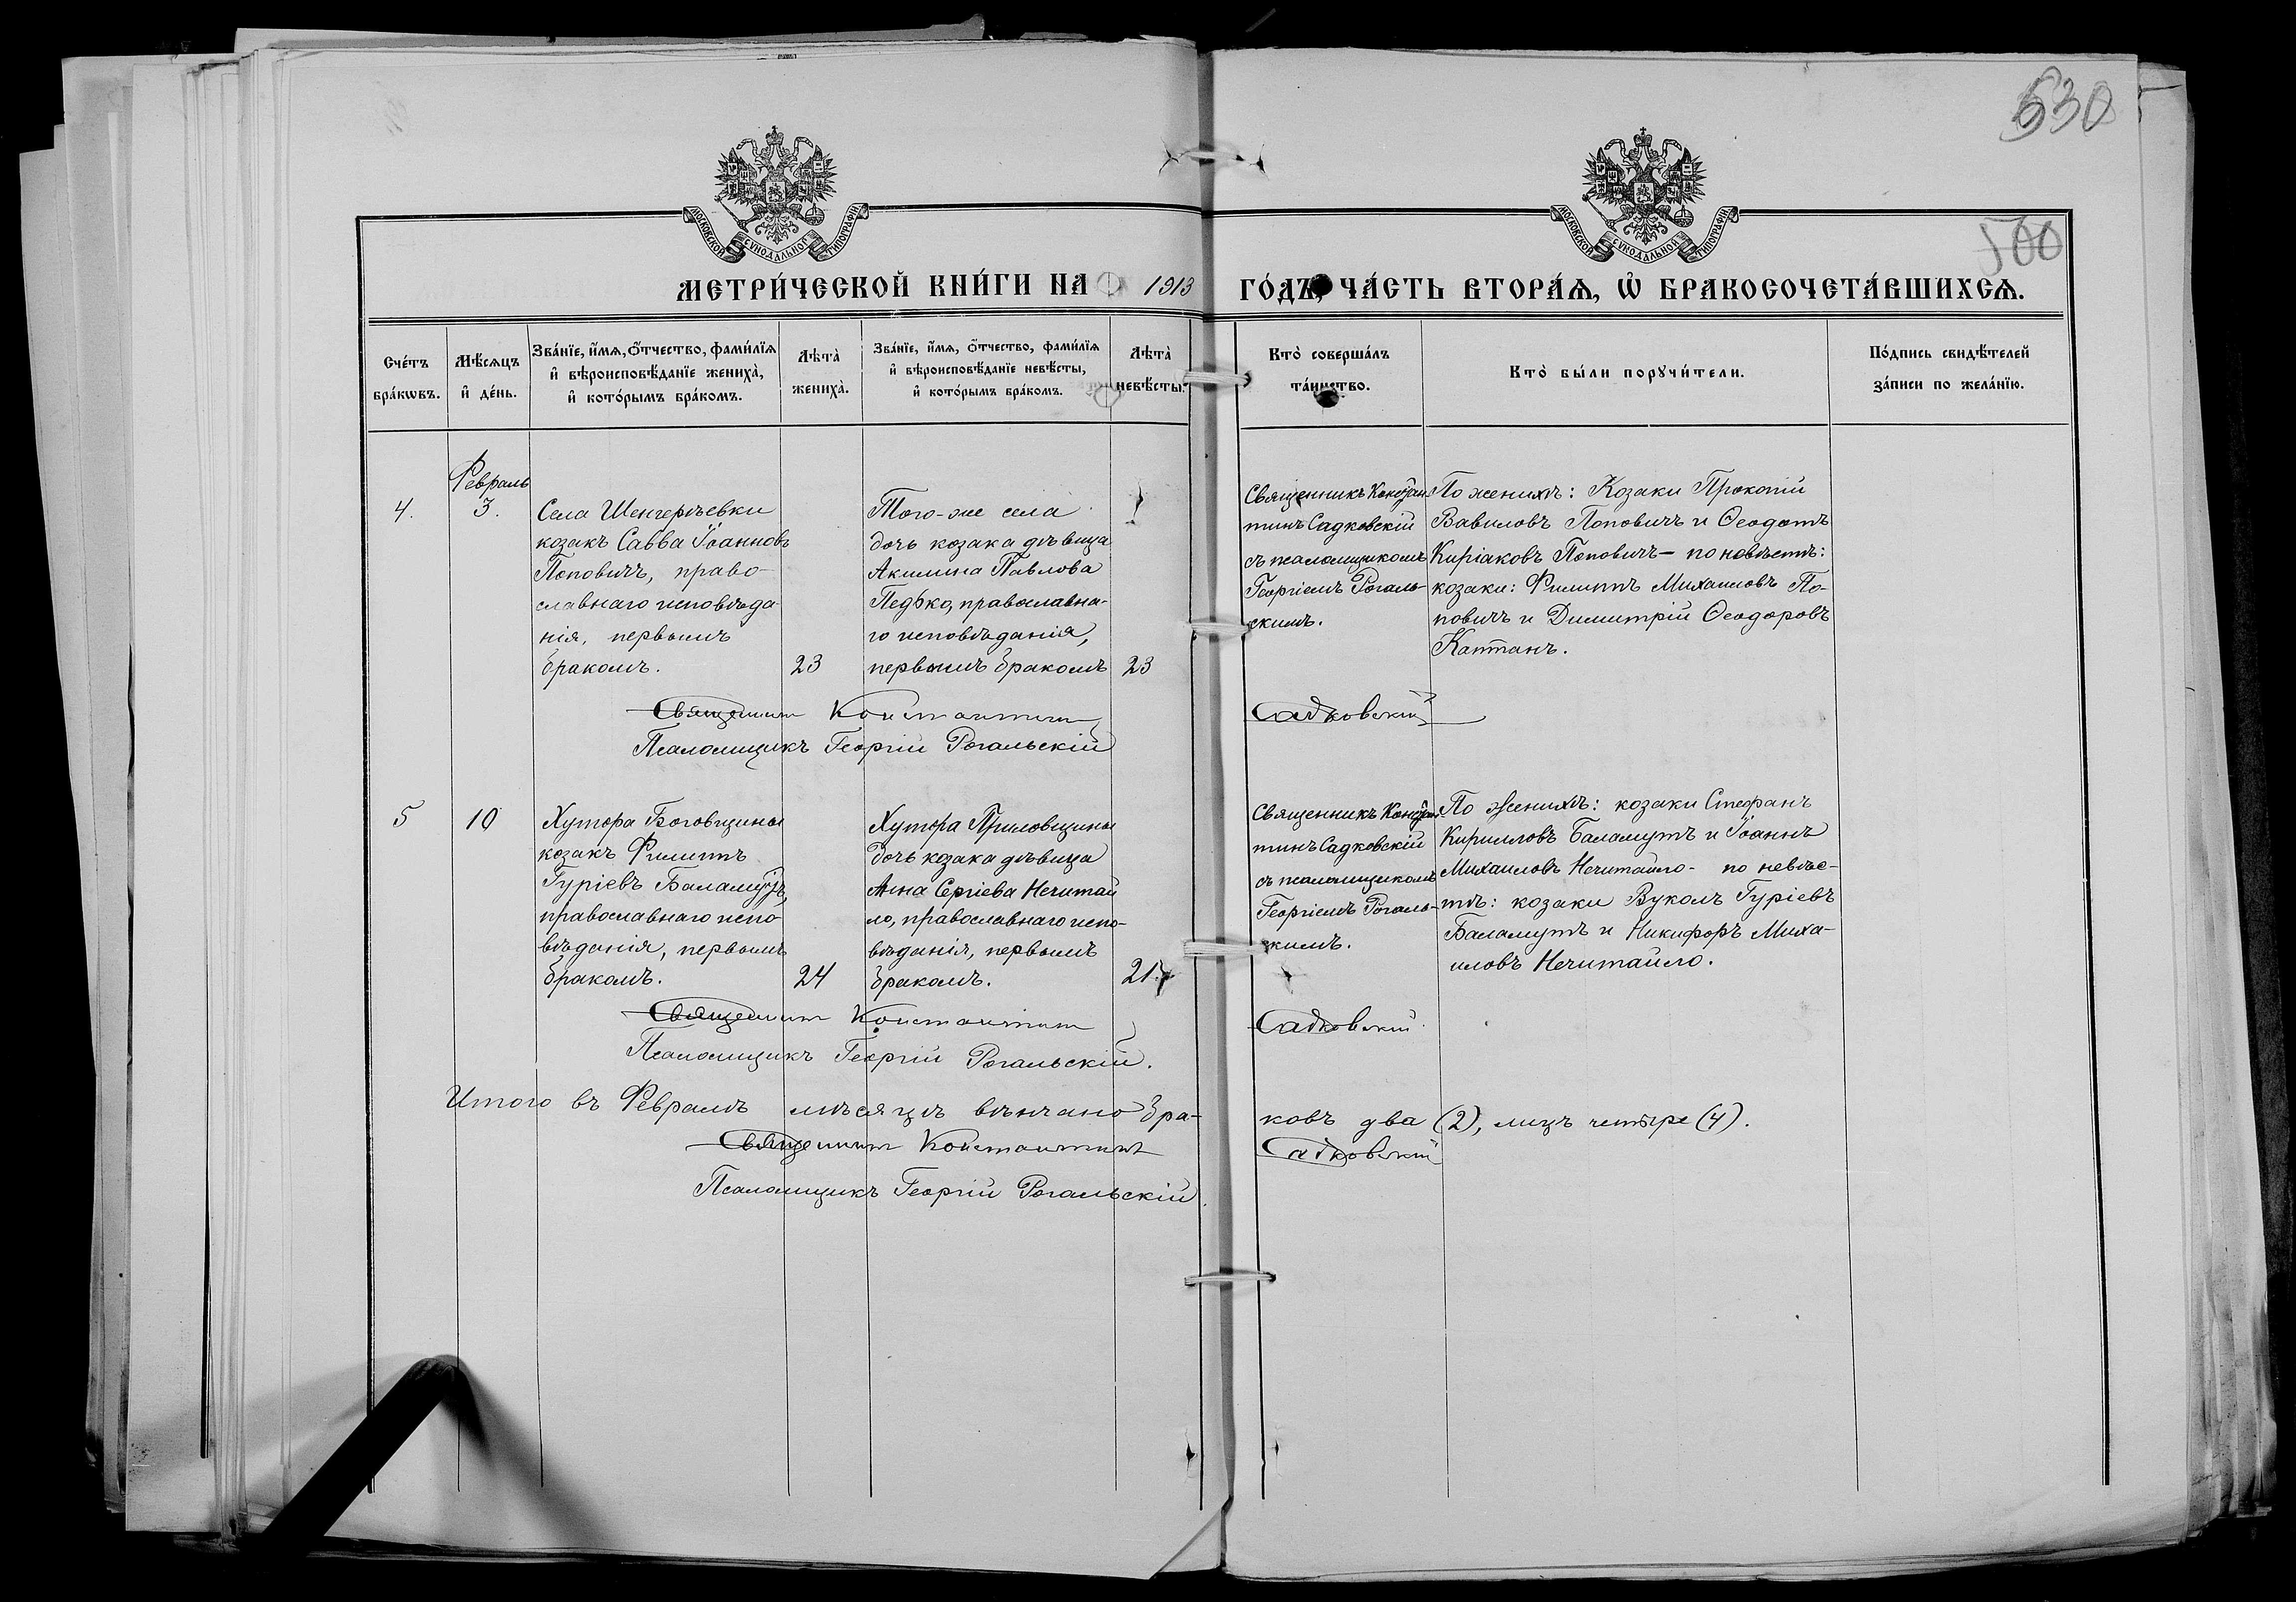 530
500
МОСКОВСКОЙ СУНОДАЛЬНОЙ ТИПОГРАФІИ
МОСКОВСКОЙ СУНОДАЛЬНОЙ ТИПОГРАФІИ
МЕТРИ́ЧЕСКОЙ КНИ́ГИ НА 1913 ГО́ДЪ, ЧА́СТЬ ВТОРА́Ѧ, Ѡ БРАКОСОЧЕТА́ВШИХСѦ.
Счéтъ
бра́кѡвъ.
Мѣ́сяцъ
и҆ дéнь.
Зва́нїе, и҆́мѧ, ѻ҆́тчество, фами́лїѧ
и҆ вѣроисповѣ́данїе женихà,
и҆ кото́рымъ бра́комъ.
Лѣтà
женихà.
Зва́нїе, и҆́мѧ, ѻ҆́тчество, фами́лїѧ
и҆ вѣроисповѣ́данїе невѣ́сты,
и҆ кото́рымъ бра́комъ.
Лѣтà
невѣ́сты.
Ктò соверша́лъ
та́инство.
Ктò бы́ли порꙋчи́тели.
По́дпись свидѣ́телей
за́писи по жела́нїю.
Февраль
4.
3.
Села Шенгерѣевки
козакъ Савва Іоанновъ
Поповичъ, право-
славнаго исповѣда-
нія, первымъ
бракомъ.
23
Того-же села
дочь козака дѣвица
Акилина Павлова
Педько, православна-
го исповѣданія,
первымъ бракомъ
23
Священникъ Констан-
тинъ Садковскій
съ псаломщикомъ
Георгіемъ Рогаль-
скимъ.
По женихѣ: Козаки Прокопій
Вавиловъ Поповичъ и Ѳеодотъ
Киріаковъ Поповичъ – по невѣстѣ:
козаки: Филиппъ Михаиловъ По-
повичъ и Димитрій Ѳеодоровъ
Каптанъ.
Священникъ Константинъ Садковскій
Псаломщикъ Георгій Рогальскій
5
10
Хутора Боговщины
козакъ Филиппъ
Гуріевъ Баламутъ,
православнаго испо-
вѣданія, первымъ
бракомъ.
24
Хутора Приловщины
дочь козака дѣвица
Анна Сергіева Нечитай
ло, православнаго испо-
вѣданія, первымъ
бракомъ.
21
Священникъ Констан-
тинъ Садковскій
съ псаломщикомъ
Георгіемъ Рогаль-
скимъ.
По женихѣ: козаки Стефанъ
Кирилловъ Баламутъ и Іоаннъ
Михаиловъ Нечитайло - по невѣс-
тѣ: козаки Вуколъ Гуріевъ
Баламутъ и Никифоръ Миха-
иловъ Нечитайло.
Священникъ Константинъ Садковскій
Псаломщикъ Георгій Рогальскій.
Итого въ Февралѣ мѣсяцѣ вѣнчано бра-ковъ два (2), лицъ четыре (4).
Священникъ Константинъ Садковскій
Псаломщикъ Георгій Рогальскій.